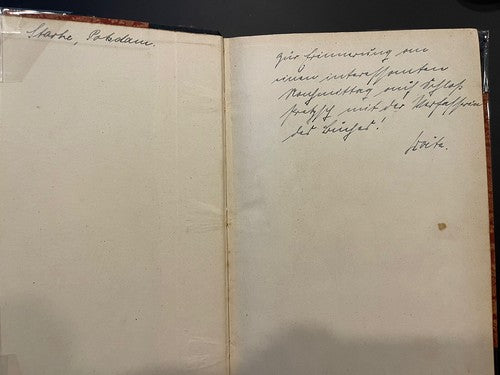 Starke, Potsdam.
Zur Erinnerung an
einen interessanten
Nachmittag auf Schloß
mit der Verfasserin
des Buches!